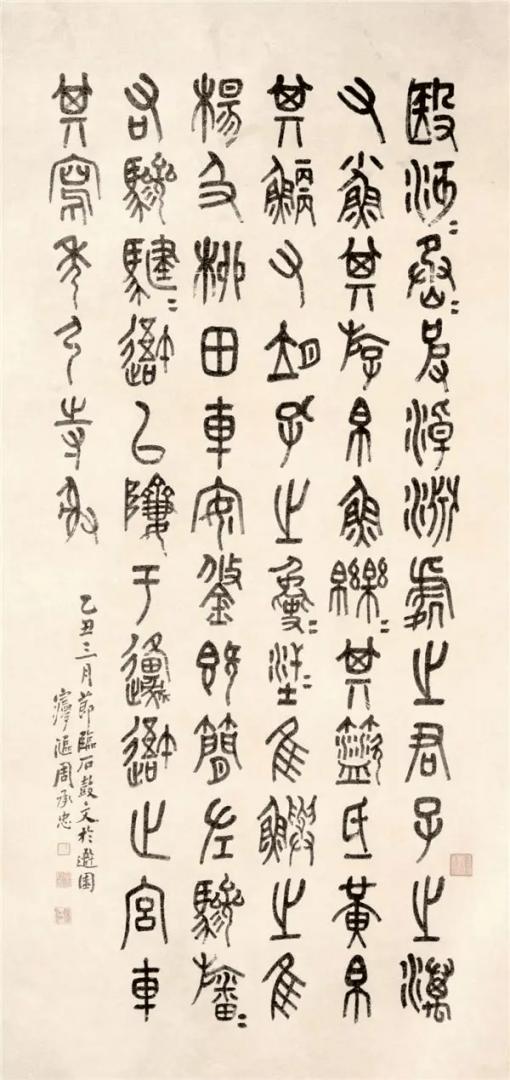 殹沔=烝=彼淖淵處之君子之澫
又小魚其斿帛魚皪=其盜氐黃帛
其鯾又孔之毚=汗=隹鱮之隹
楊及柳田車安鋚既簡左驂旛=
右驂騝=避以隮于邍避止宮車
其寫秀弓寺射
乙丑三月節臨石鼓文於園
漚周承忠